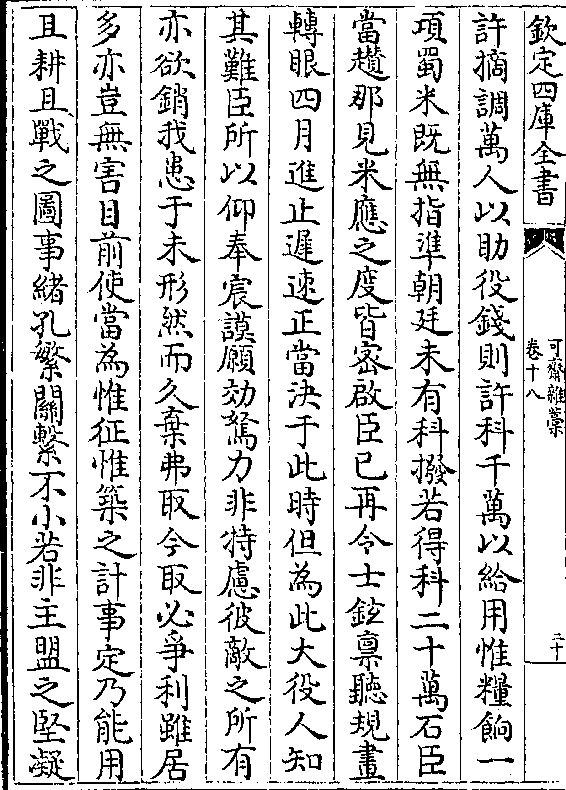 欽定四庫全書
可齋雜藁
卷十八
二十
許摘調萬人以助役錢則許科千萬以給用惟糧餉一
項蜀米既無指準朝廷未有科撥若得科二十萬石臣
當趲那見米應之度皆密啟臣已再令士鉉稟聽規畫
轉眼四月進止遲速正當決于此時但為此大役人知
其難臣所以仰奉宸謨願効駑力非特慮彼敵之所有
亦欲銷我患于未形然而久棄弗取今取必爭利雖居
多亦豈無害目前使當為惟征惟築之計事定乃能用
且耕且戰之圖事緒孔繁關繫不小若非主盟之堅凝